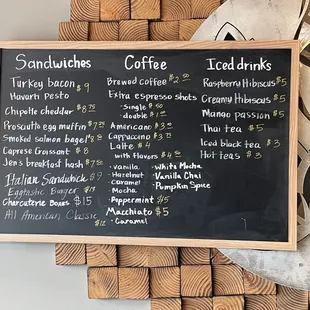 Sandwiches
Turkey bacon $9
Havarti pesto
Chipotle cheddar $8.75
Prosciutto egg muffin $7.75
Smoked salmon bagel
Caprese Croissant $8
Jen's breakfast hash $7.50
Italian Sandwich $9
Egg-tastic Burger
Charcuterie Boxes $15
All American Classic
$12
Coffee
Brewed Coffee $2.50
Extra espresso shots
- single $.50
- double $1.00
Americano $3
Cappuccino $3.75
Latte $4
with flavors $4.50
- Vanilla
- Hazelnut
- Caramel
- Mocha
- White Mocha
- Vanilla Chai
- Pumpkin Spice
- Peppermint $4.5
Macchiato $5
- Caramel
Iced drinks
Raspberry Hibiscus $5
Creamy Hibiscus $5
Mango passion $5
Thai tea $5
Iced black tea $3
Hot teas $3